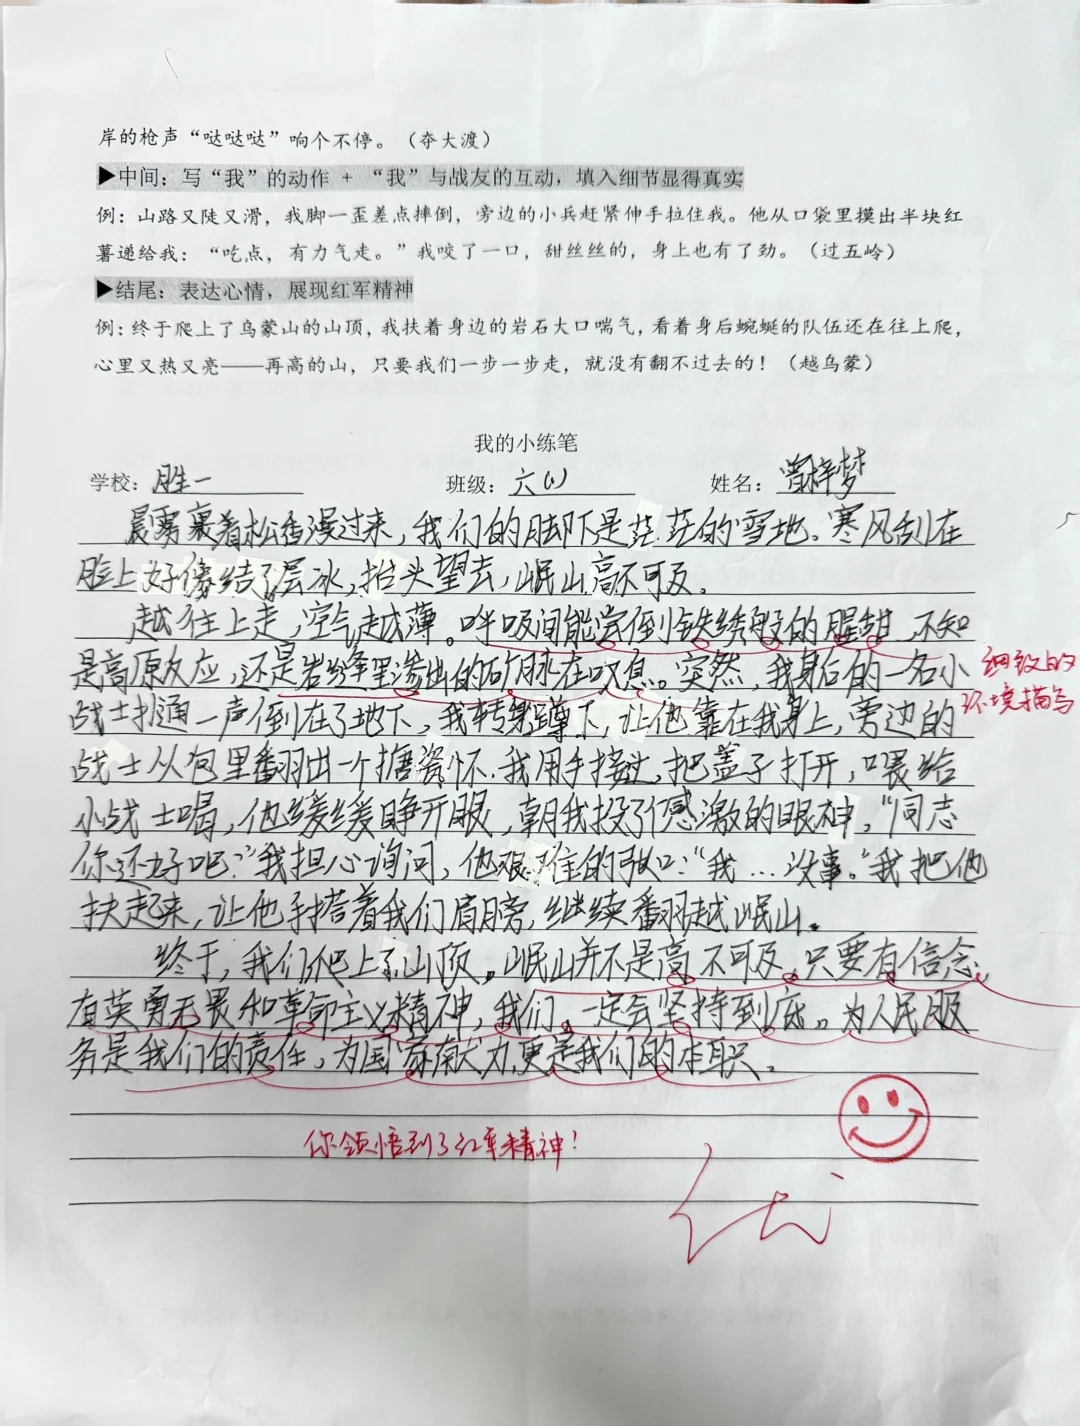 岸的枪声“哒哒哒”响个不停。（夺大渡）
▶中间：写“我”的动作 + “我”与战友的互动，填入细节显得真实
例：山路又陡又滑，我脚一歪差点摔倒，旁边的小兵赶紧伸手拉住我。他从口袋里摸出半块红
薯递给我：“吃点，有力气走。”我咬了一口，甜丝丝的，身上也有了劲。（过五岭）
▶结尾：表达心情，展现红军精神
例：终于爬上了乌蒙山的山顶，我扶着身边的岩石大口喘气，看着身后蜿蜒的队伍还在往上爬，
心里又热又亮——再高的山，只要我们一步一步走，就没有翻不过去的！（越乌蒙）
我的小练笔
学校：胜一 班级：六(1) 姓名：曾梓梦
晨雾裹着松香漫过来，我们的脚下是茫茫的雪地。寒风刮在
脸上好像结了层冰，抬头望去，岷山高不可及。
越往上走，空气越薄。呼吸间能尝到铁绣般的腥甜，不知
是高原反应，还是岩缝里渗出的矿脉在叹息。突然，我身后的一名小
细致的
环境描写
战士扑通一声倒在了地下，我转身蹲下，让他靠在我身上，旁边的
战士从包里翻出一个搪瓷怀，我用手接过，把盖子打开，喂给
小战士喝，他缓缓睁开眼，朝我投了个感激的眼神，“同志
你还好吧？”我担心询问，他艰难的张口：“我…没事。”我把他
扶起来，让他手搭着我们肩膀，继续翻越岷山。
终于，我们爬上了山顶。岷山并不是高不可及，只要有信念，
有英勇无畏和革命主义精神，我们一定会坚持到底。为人民服
务是我们的责任，为国家献力，更是我们的本职。
你领悟到了红军精神！
优